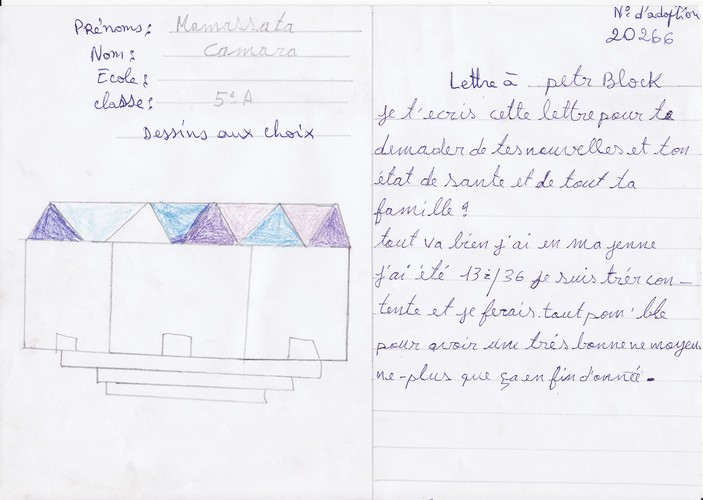 Prénoms: Mamassata
Nom: Camara
Ecole:
classe: 5e A
Dessins aux choix
No d'adoption
20266
Lettre à petr Block
je t'ecris cette lettre pour te
demader de tes nouvelles et ton
état de sante et de tout ta
famille?
tout va bien j'ai en ma jenne
j'ai été 13è/36 je suis trér con-
tente et je ferais tout pom'ble
pour avoir une trés bonne ne moyen
ne-plus que ça en fin d'onnée.